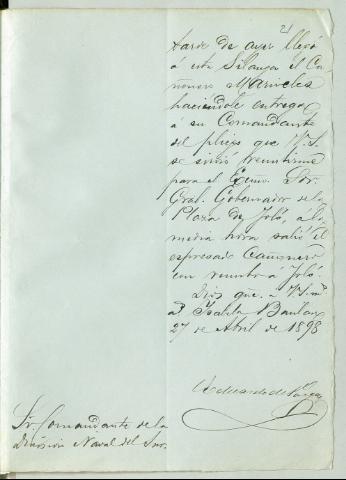 21
tarde de ayer llegó
á esta Silanga el Ca-
ñonero Mariveles
haciéndole entrega
á su Comandante
del pliego que V.S.
se sirvió remitirme
para el Excmo. Sor.
Gral. Gobernador de la
Plaza de Joló, á la
media hora salió el
espresado Cañonero
con rumbo á Joló.
Dios gue. a V.S. ms
as Isabela Basilan
27 de Abril de 1898
Eduardo de
Sr. Comandante de la
Division Naval del Sur.